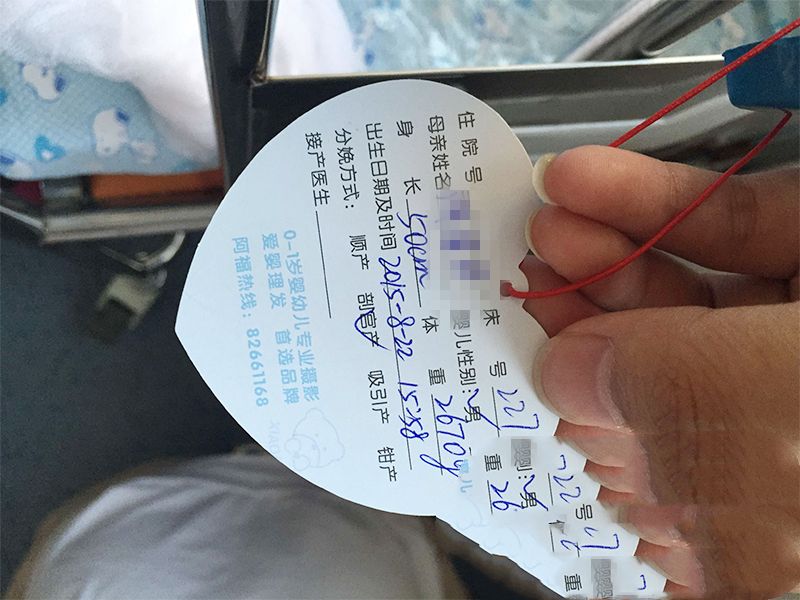 住院号 床号 227
母亲姓名 婴儿性别：男
身长 50cm 体重 2670g
出生日期及时间 2015-8-22 15:58
分娩方式： 顺产 剖宫产 吸引产 钳产
接产医生
0-1岁婴幼儿专业摄影
爱婴理发 首选品牌
阿福热线：82661168